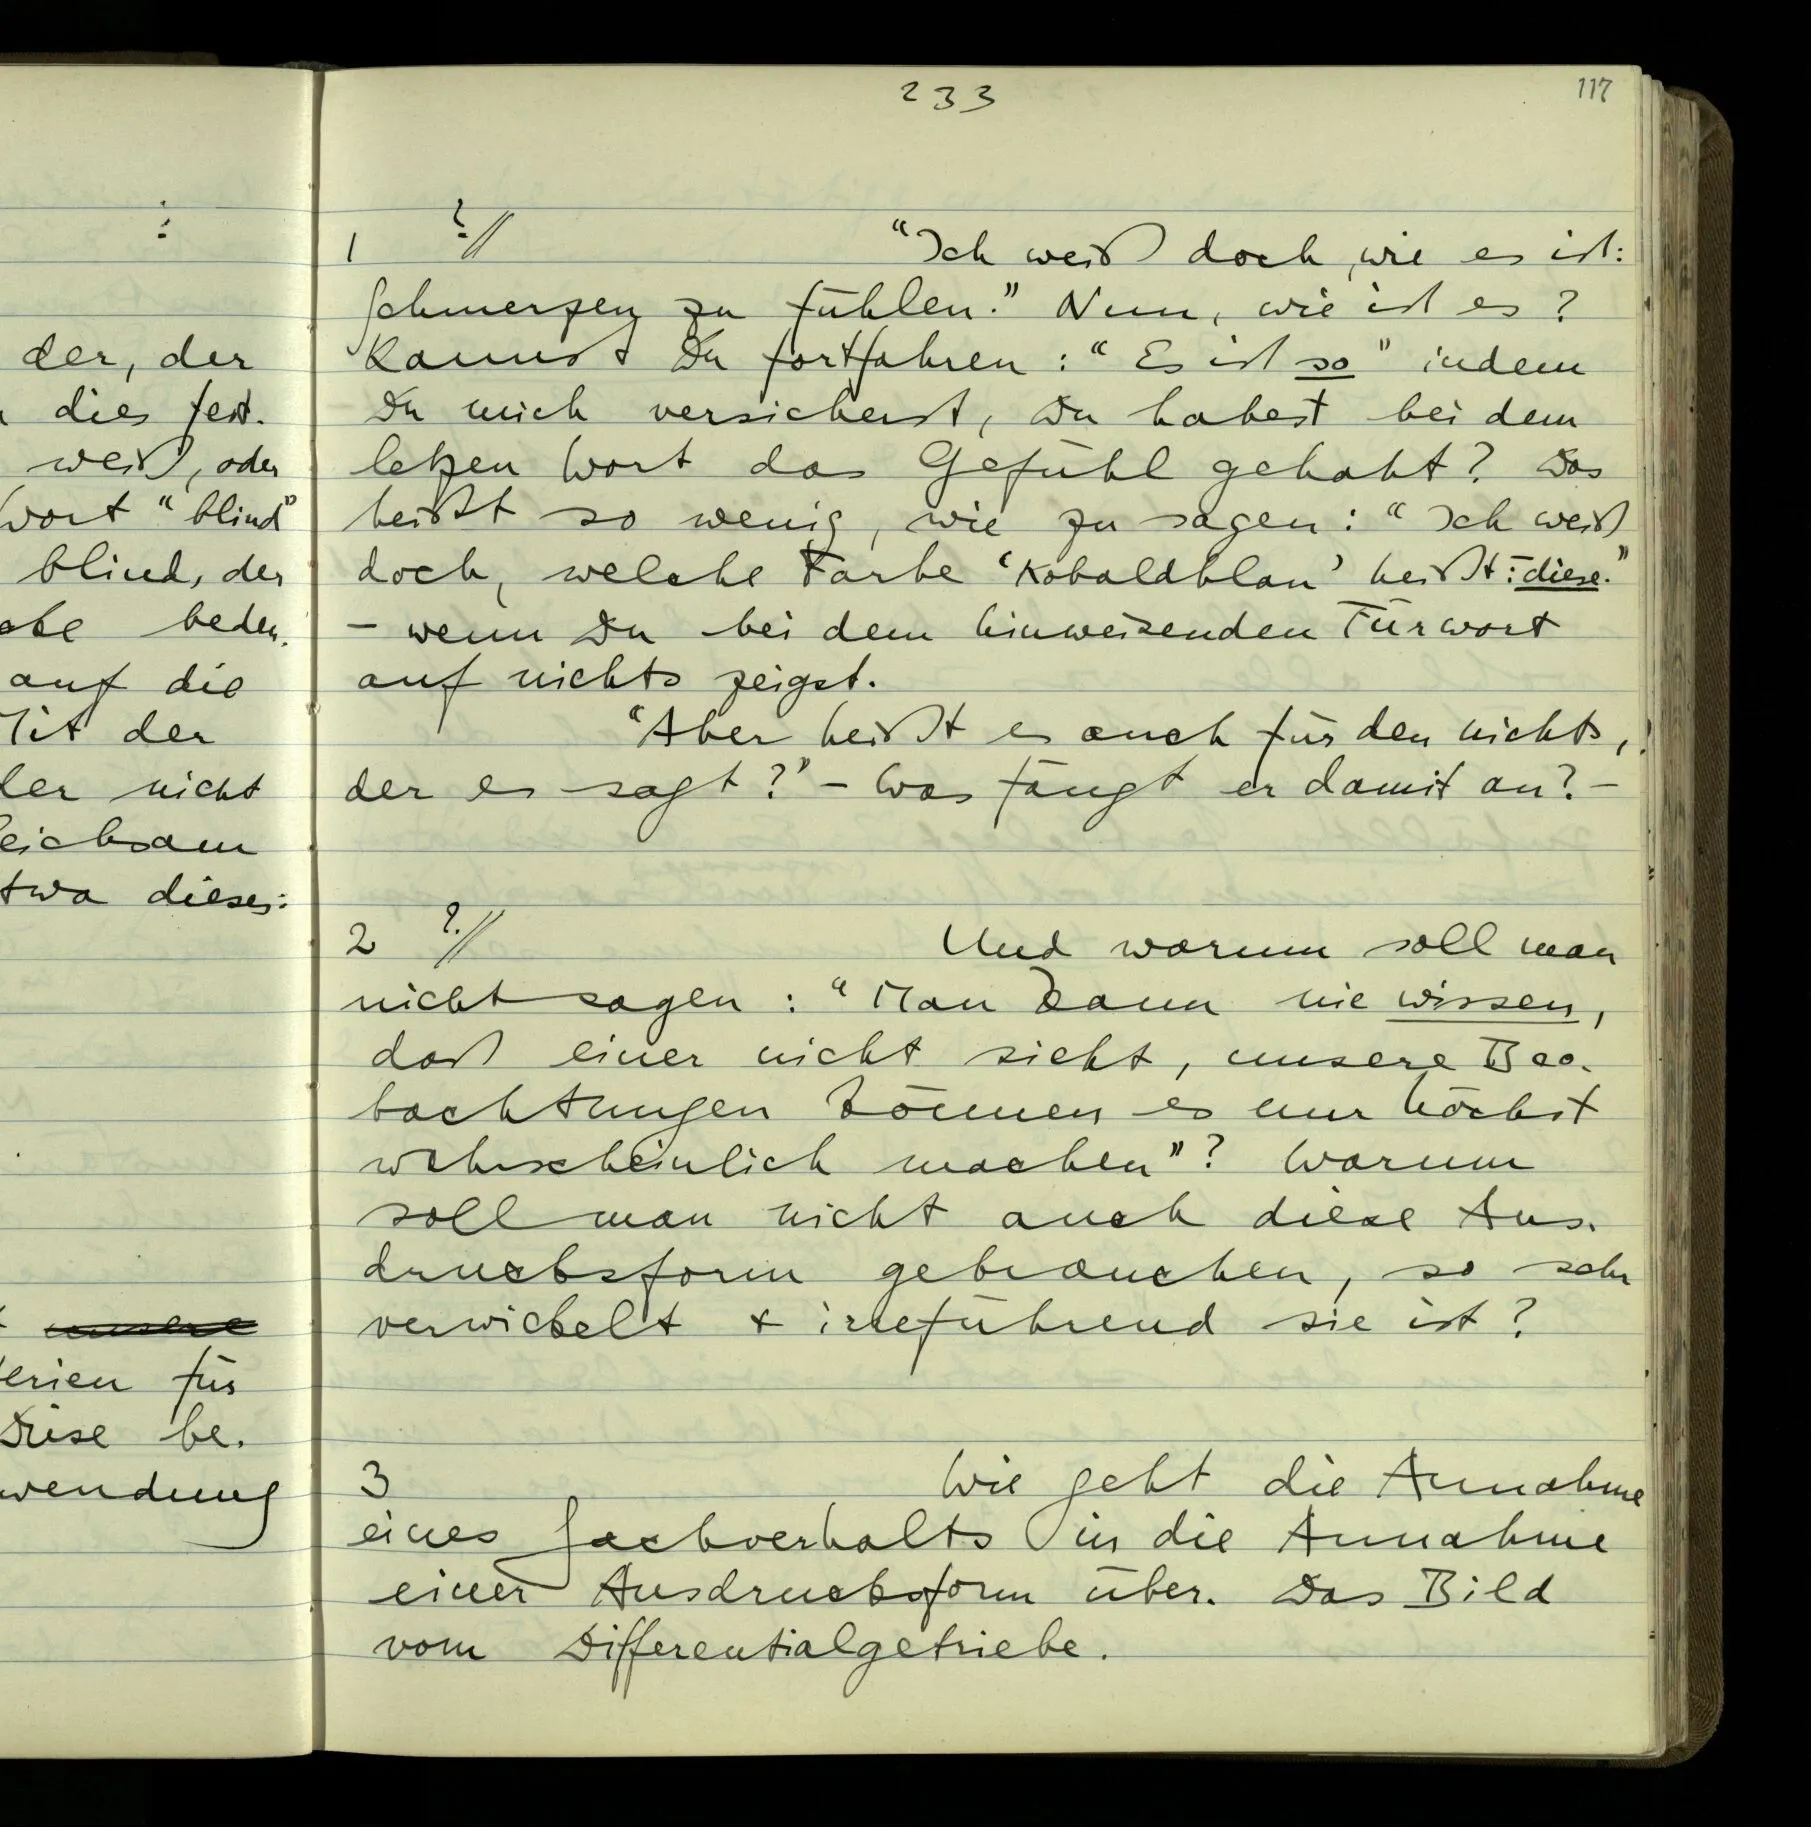 233
117
:
der, der
dies fest.
weiß, oder
Wort "blind"
blind, der
auf die
Mit der
nicht
dieses:
unsere
für
Diese be-
1 ?// "Ich weiß doch, wie es ist:
Schmerzen zu fühlen." Nun, wie ist es?
Kannst Du fortfahren: "Es ist so" indem
Du mich versicherst, Du habest bei dem
letzen Wort das Gefühl gehabt? Das
heißt so wenig, wie zu sagen: "Ich weiß
doch, welche Farbe 'Kobaldblau' heißt: diese."
– wenn Du bei dem hinweisenden Fürwort
auf nichts zeigst.
"Aber heißt es auch für den nichts,
der es sagt?" – Was fängt er damit an? –
2 ?// Und warum soll man
nicht sagen: "Man kann nie wissen,
daß einer nicht sieht, unsere Beo-
bachtungen können es nur höchst
wahrscheinlich machen"? Warum
soll man nicht auch diese Aus-
drucksform gebrauchen, so sehr
verwickelt & irreführend sie ist?
3 Wie geht die Annahme
eines Sachverhalts in die Annahme
einer Ausdrucksform über. Das Bild
vom Differentialgetriebe.